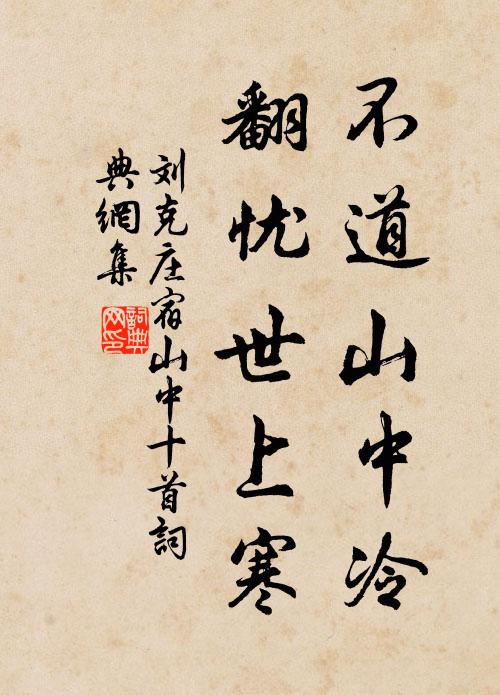 不道山中冷
翻忧世上寒
刘克庄宿山中十首詞
典網集
詞典
网印